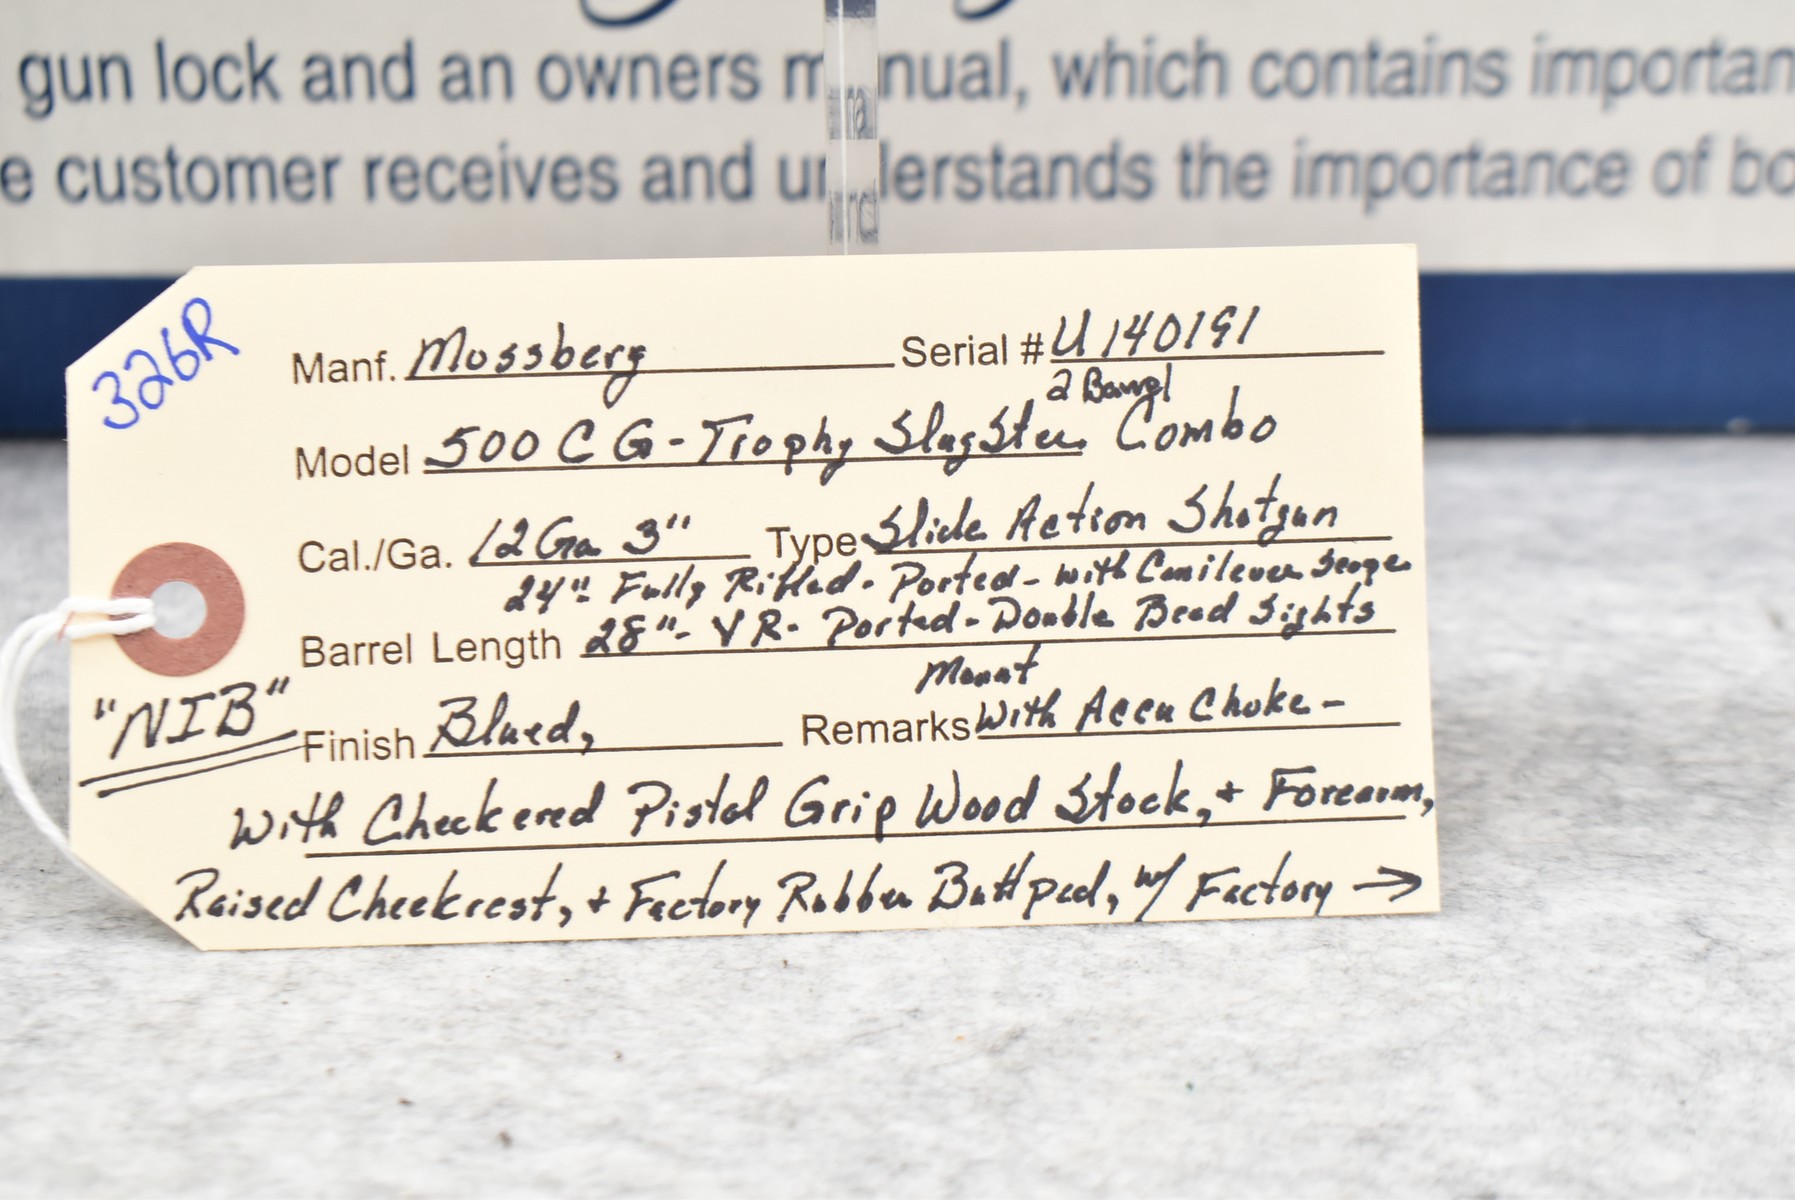 gun lock and an owners manual, which contains importan
e customer receives and understands the importance of bo
326R
Manf. Mossberg Serial # U140191
2 Barrel
Model 500 C G - Trophy SlugSter Combo
Cal./Ga. 12 Ga 3" Type Slide Action Shotgun
24" Fully Rifled - Ported - with Canilever Scope
Barrel Length 28" - VR - Ported - Double Bead Sights
Mount
"NIB"
Finish Blued, Remarks With Accu Choke -
With Checkered Pistol Grip Wood Stock, + Forearm,
Raised Cheekrest, + Factory Rubber Buttpad, w/ Factory →